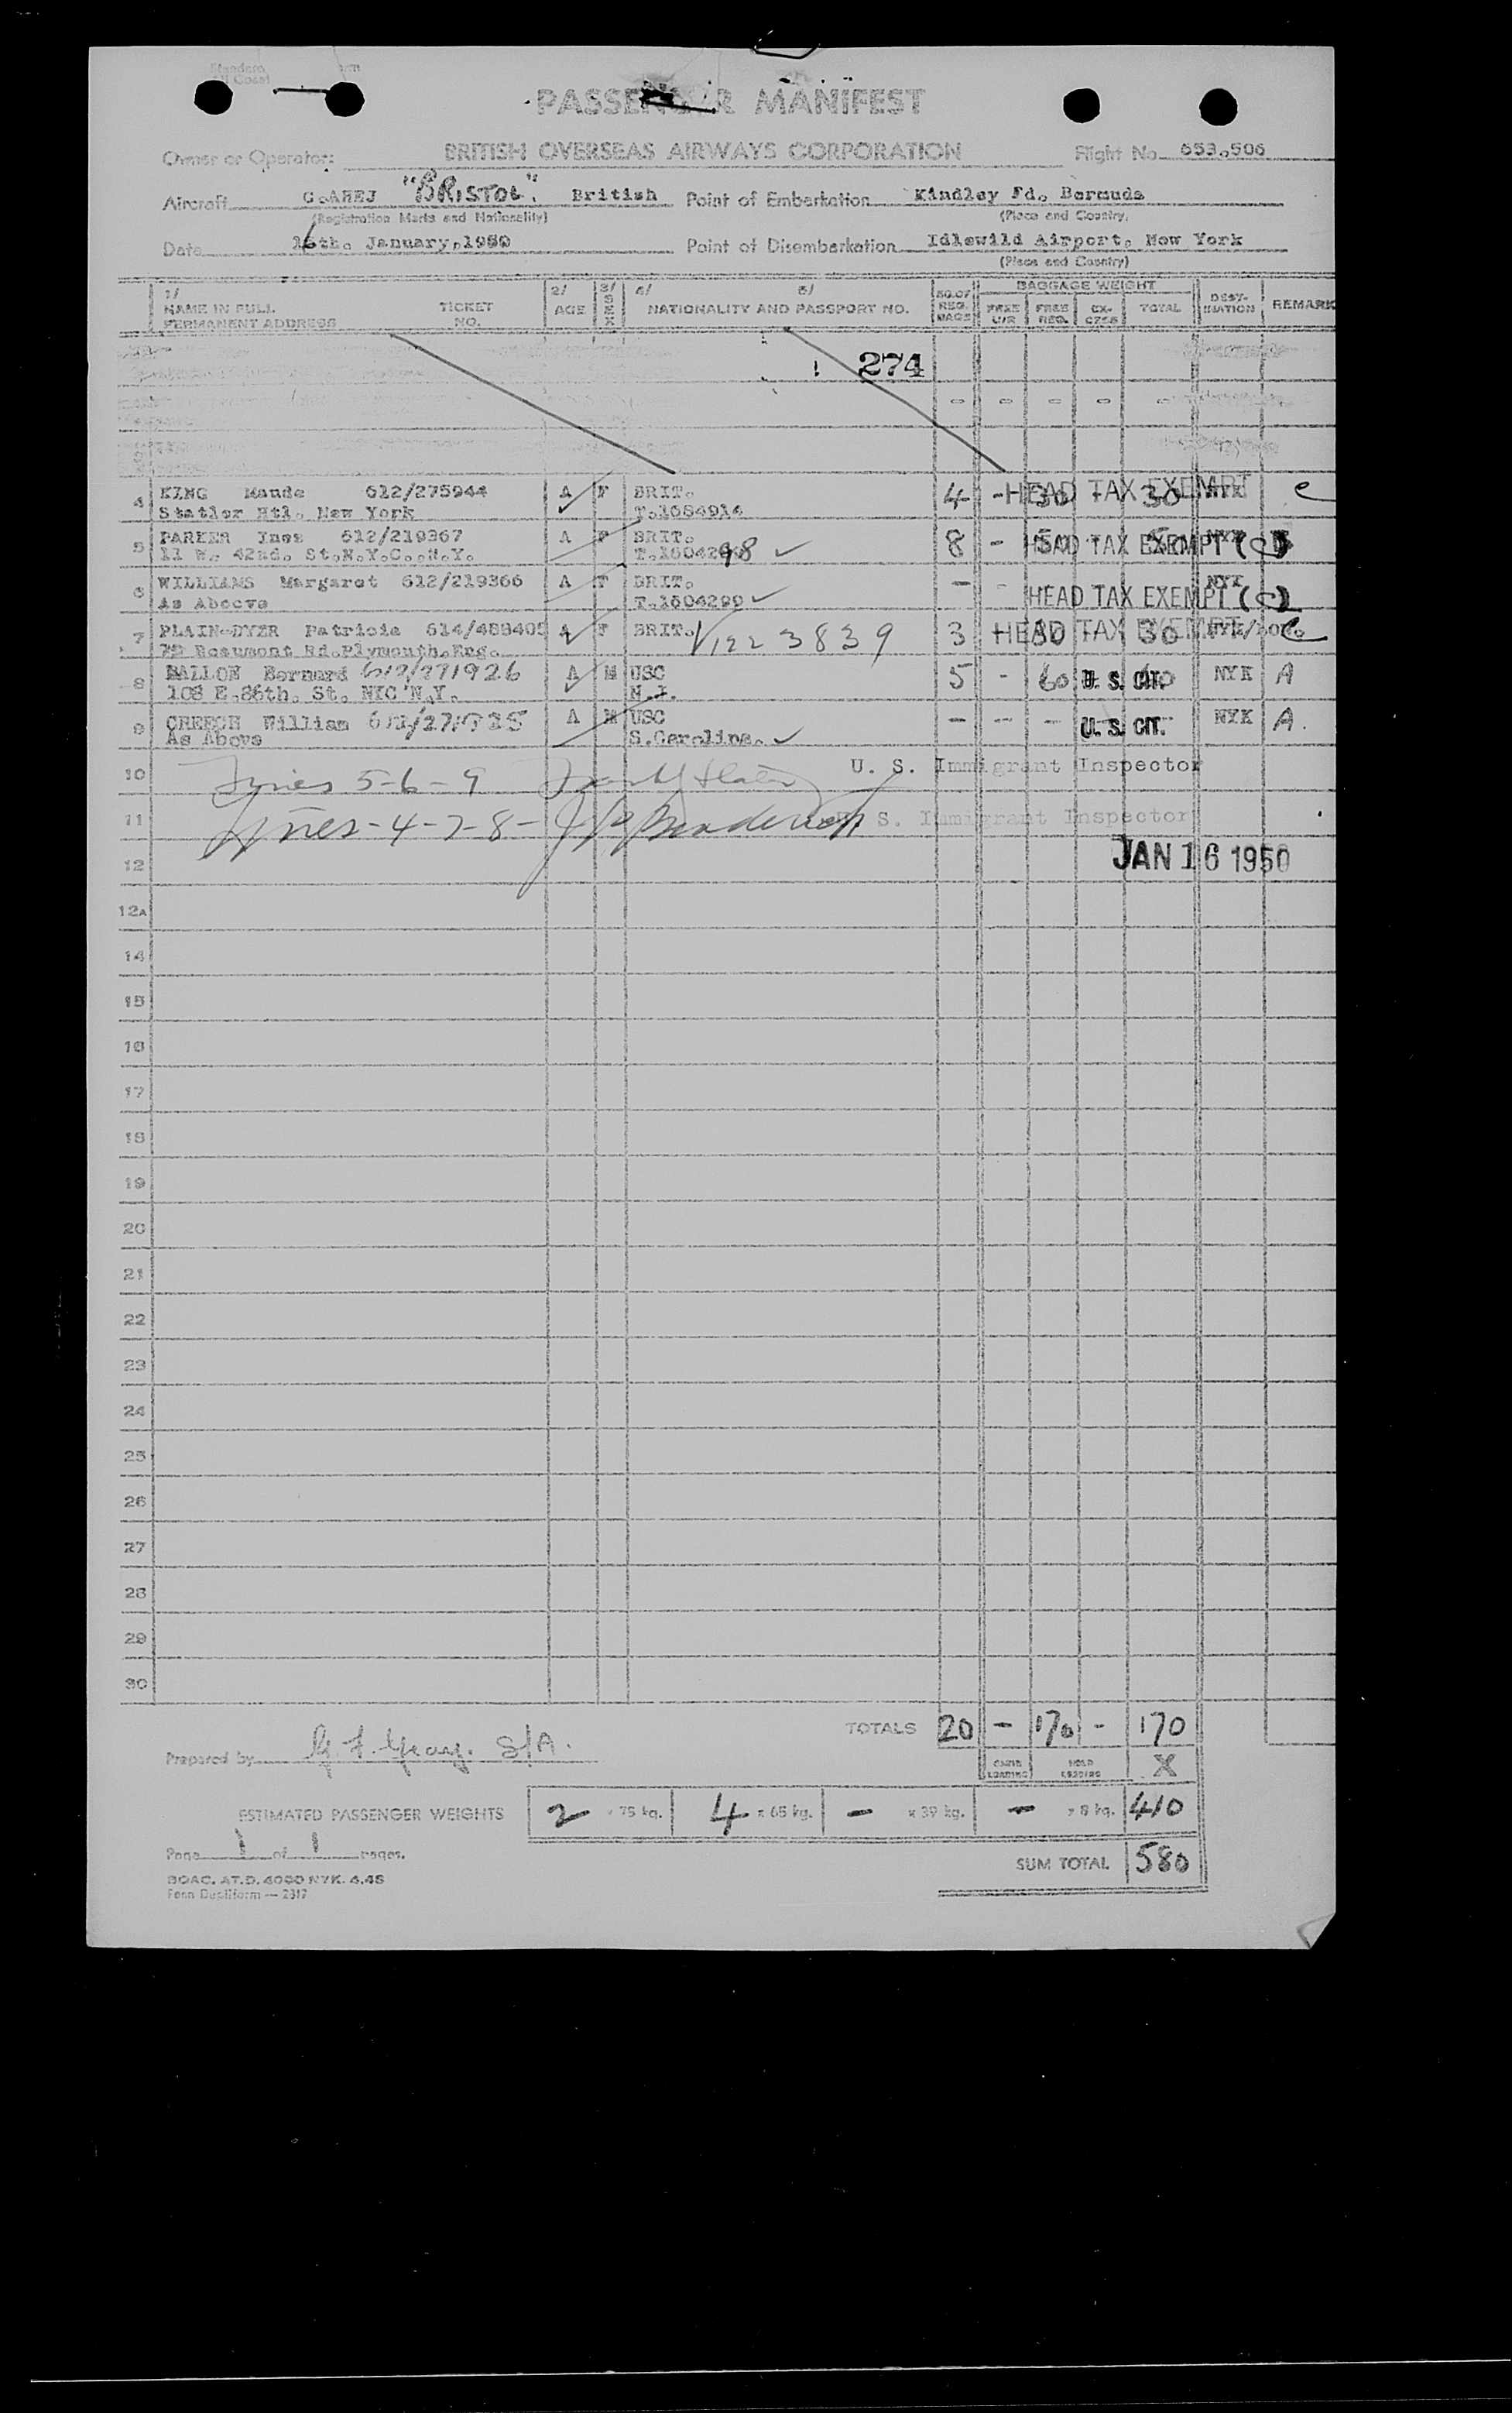 PASSENGER MANIFEST
Owner or Operator: BRITISH OVERSEAS AIRWAYS CORPORATION Flight No. 653.506
Aircraft G.AHEJ "BRISTOL". British Point of Embarkation Kindley Fd. Bermuda
(Registration Marks and Nationality) (Place and Country)
Date 16th. January,1950 Point of Disembarkation Idlewild Airport. New York
(Place and Country)
1/ 2/ 3/ 4/ 5/ NO.OF BAGGAGE WEIGHT
NAME IN FULL TICKET AGE SEX NATIONALITY AND PASSPORT NO. REG. BAGS FREE U/R FREE REG. EX-CESS TOTAL DEST-INATION REMARK
PERMANENT ADDRESS NO.
274
- - - - -
4 KING Maude 612/275944 A F BRIT. 4 - 30 - 30 NYK HEAD TAX EXEMPT
Statler Htl. New York T.1684914
5 PARKER Ines 612/219367 A F BRIT. 8 - HEAD TAX EXEMPT (C)
11 W. 42nd. St.N.Y.C.,N.Y. 98
6 WILLIAMS Margaret 612/219366 A F BRIT. - - NYK
As Abocve T.1504299 HEAD TAX EXEMPT (C)
7 PLAIN-DYER Patricia 614/489405 A F BRIT. V122 3839 3 - HEAD TAX EXEMPT
Beaumont Rd.Plymouth.Eng.
8 BALLON Bernard 612/271926 A M USC 5 - 60 U. S. CIT. 60 NYK A
108 E.86th. St. NYC N.Y. N.J.
9 CREECH William A M USC - - - U. S. CIT. NYK A.
As Above S.Carolina.
10 Lines 5-6-9 U. S. Immigrant Inspector
11 Lines-4-7-8- S. Immigrant Inspector
12 JAN 16 1950
12A
14
15
16
17
18
19
20
21
22
23
24
25
26
27
28
29
30
TOTALS 20 - 170 - 170
Prepared by S/A.
CABIN LOADING HOLD LOADING X
ESTIMATED PASSENGER WEIGHTS 2 x 75 kg. 4 x 65 kg. - x 39 kg. - x 8 kg. 410
Page 1 of 1 pages.
SUM TOTAL 580
BOAC. AT.D. 4000 NYK. 4.48
Penn Dupliform — 2317